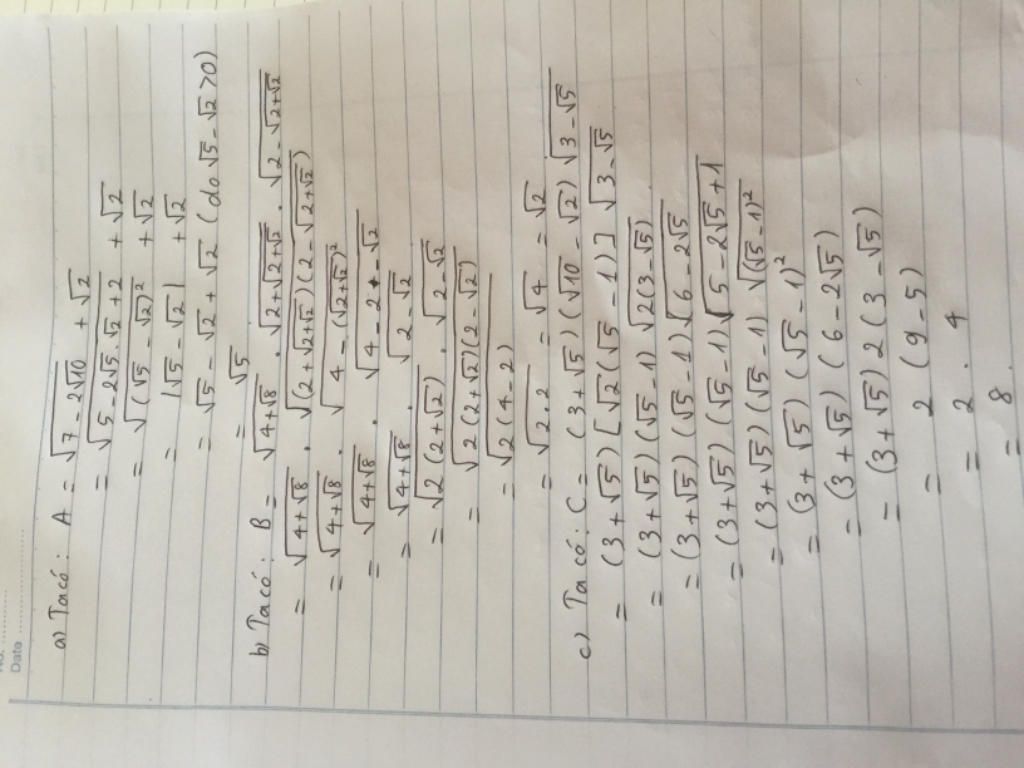 No. ........
Date ..............
a) Ta có: A = √(7 - 2√10) + √2
= √(5 - 2√5.√2 + 2) + √2
= √((√5 - √2)²) + √2
= |√5 - √2| + √2
= √5 - √2 + √2 (do √5 - √2 > 0)
= √5
b) Ta có: B = √(4+√8) . √(2+√(2+√2)) . √(2-√(2+√2))
= √(4+√8) . √((2+√(2+√2))(2-√(2+√2)))
= √(4+√8) . √(4-(√(2+√2))²)
= √(4+√8) . √(4-2-√2)
= √(4+√8) . √(2-√2)
= √(2(2+√2)) . √(2-√2)
= √(2(2+√2)(2-√2))
= √(2(4-2))
= √(2.2) = √4 = √2
c) Ta có: C = (3+√5)(√10 - √2) √(3-√5)
= (3+√5)[√2(√5-1)] √(3-√5)
= (3+√5)(√5-1) √(2(3-√5))
= (3+√5)(√5-1) √(6-2√5)
= (3+√5)(√5-1) √(5-2√5+1)
= (3+√5)(√5-1) √((√5-1)²)
= (3+√5)(√5-1)²
= (3+√5)(6-2√5)
= (3+√5) 2 (3-√5)
= 2 (9-5)
= 2 . 4
= 8